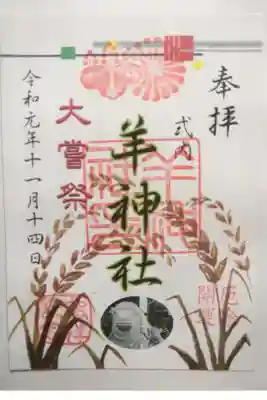 奉拝
式内
羊神社
大嘗祭
令和元年十一月十四日
開運